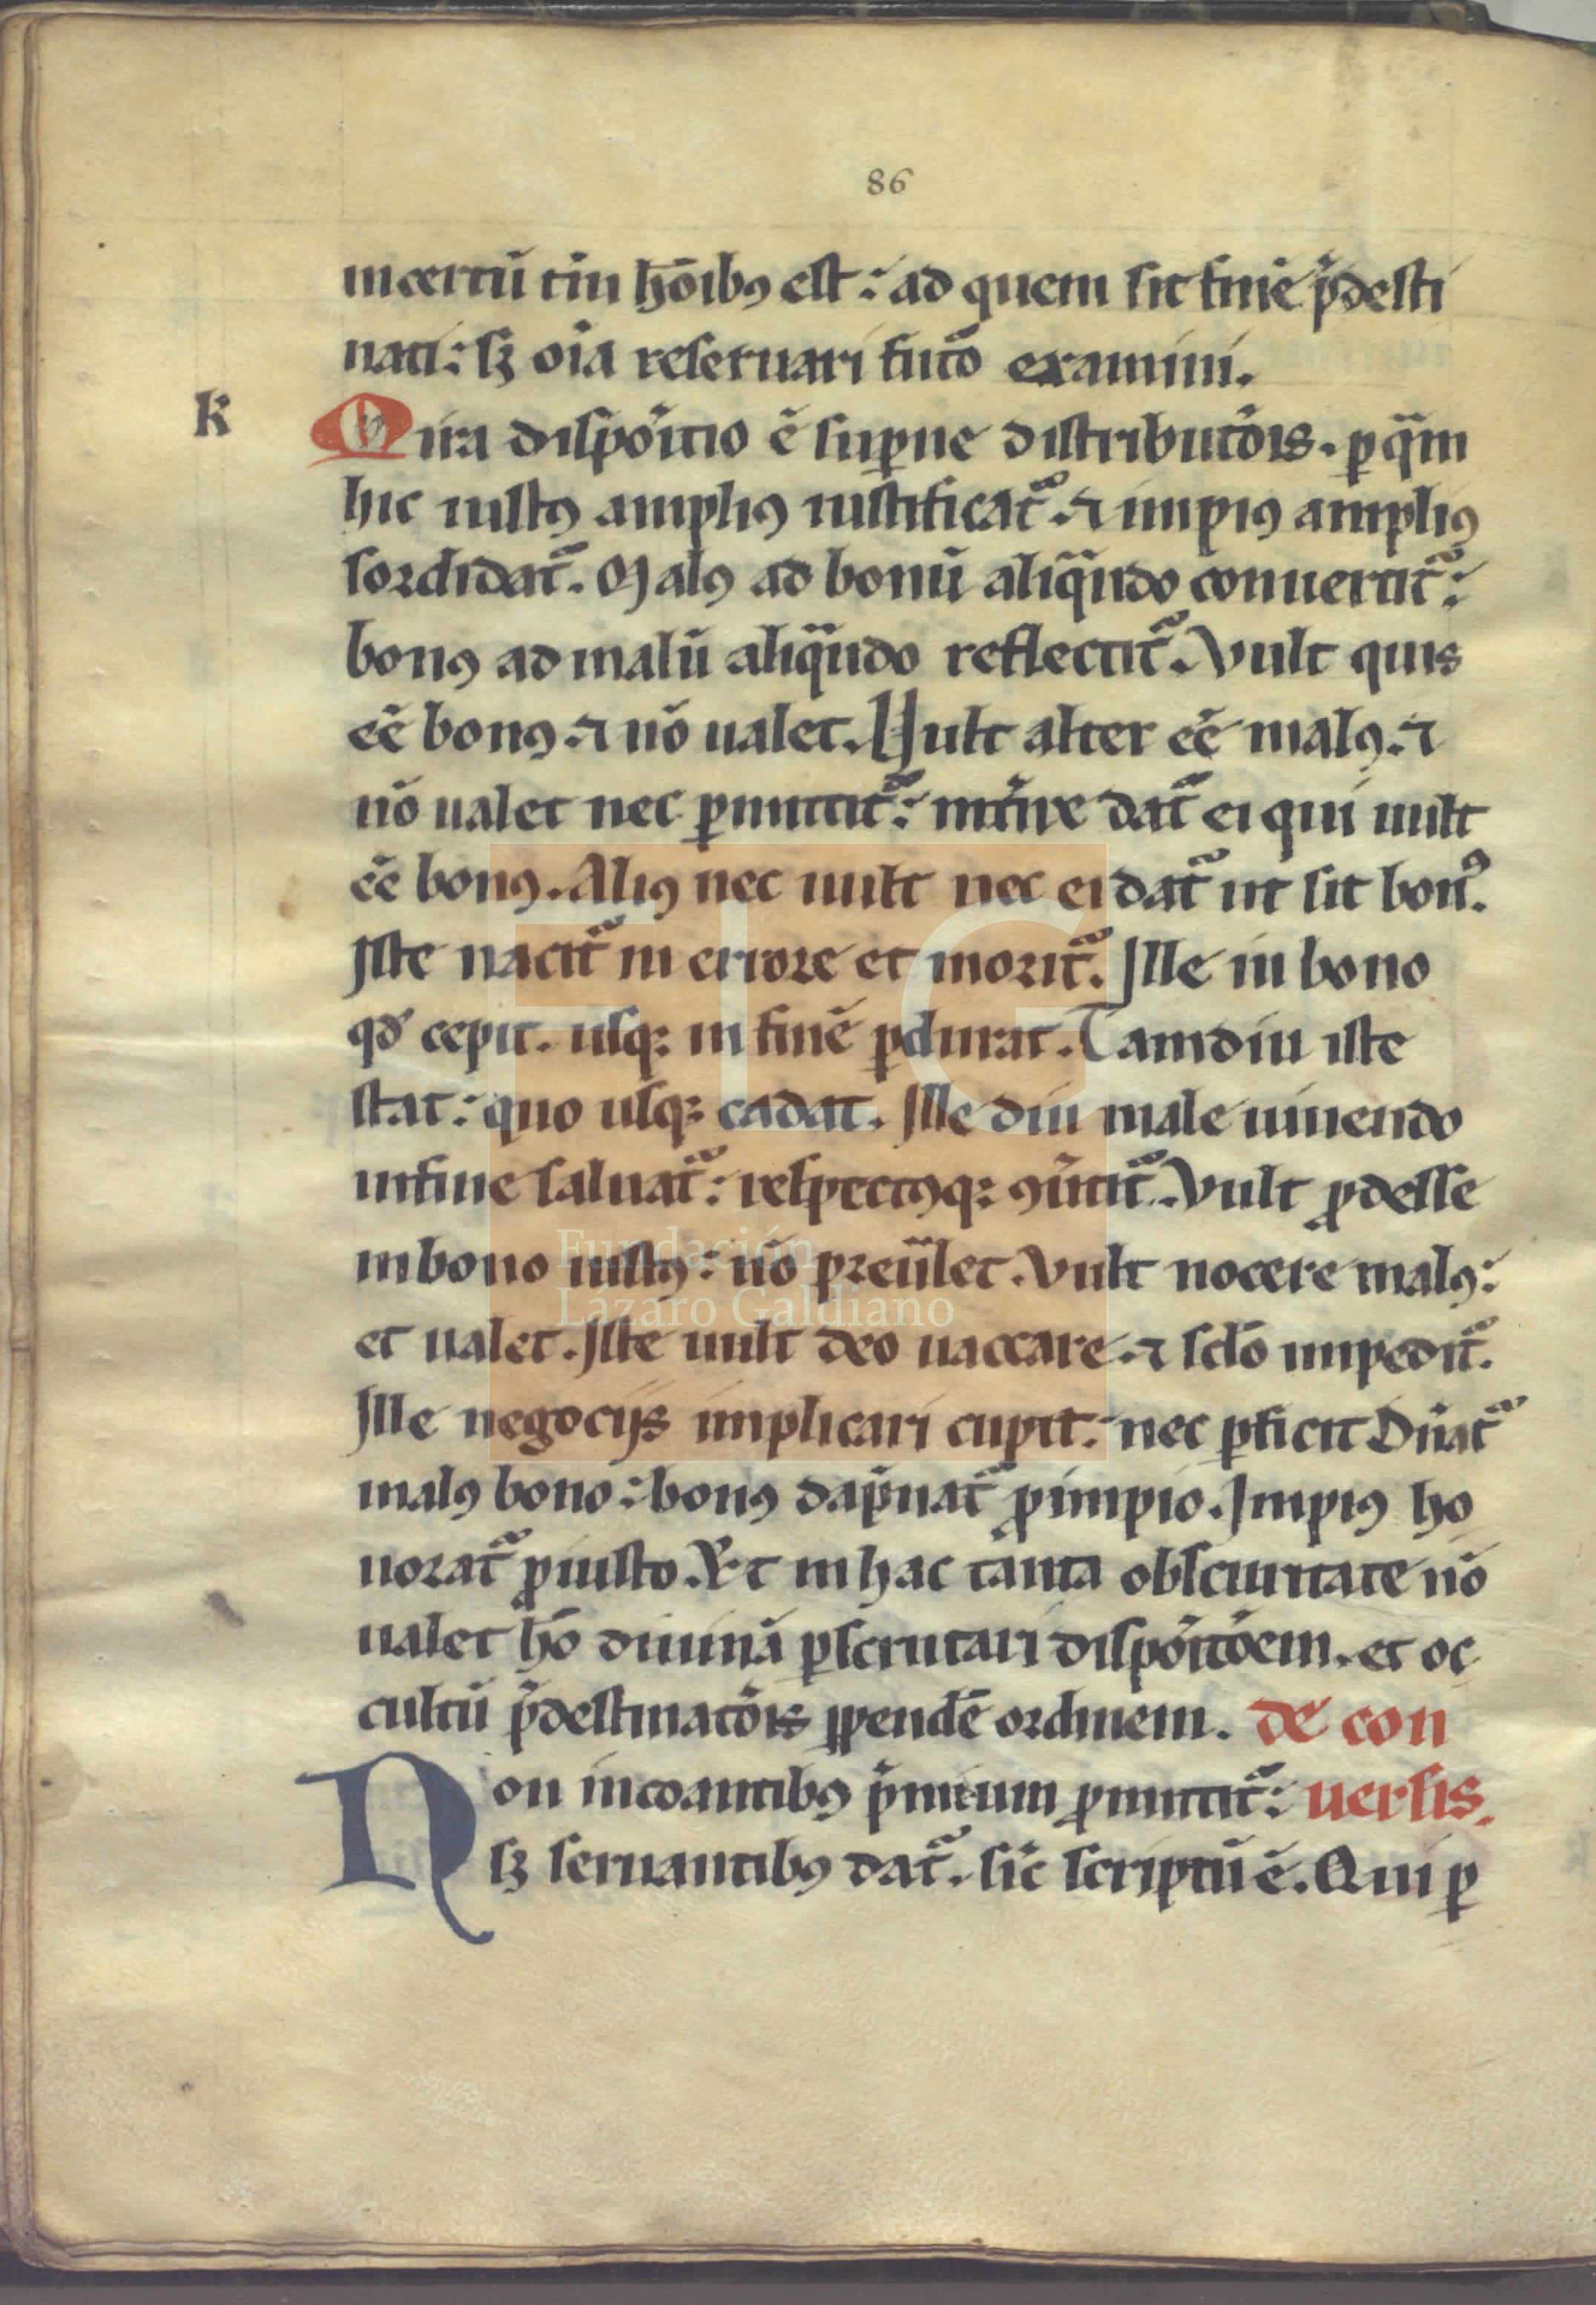 86
incertū tm̄ hōibꝫ est: ad quem sit finē p̄desti
nati: sꝫ oīa reseruari futō examini.
K
Mira dispoītio ē sup̄ne distributōis. ꝑq̄m
hic iustꝰ ampliꝰ iustificat᷑. ⁊ impiꝰ ampliꝰ
sordidat᷑. Malꝰ ad bonū aliqn̄do conuertit᷑:
bonꝰ ad malū aliqn̄do reflectit᷑. Vult quis
eē bonꝰ. ⁊ nō ualet. Vult alter eē malꝰ. ⁊
nō ualet nec ꝑmittit᷑: dat᷑ ei qui uult
eē bonꝰ. Aliꝰ nec uult nec ei dat᷑ ut sit bonꝰ.
Iste nacit᷑ in errore et morit᷑. Ille in bono
qd̓ cepit. usqꝫ in finē ꝑdurat. Tamdiu iste
stat: quo usqꝫ cadat. Ille diu male uiuendo
infine saluat᷑: respectusqꝫ ꝯūtit᷑. Vult ꝓdesse
inbono iustꝰ: nō preualet. Vult nocere malꝰ:
et ualet. Iste uult deo uaccare. ⁊ sclō impedit᷑.
Ille negocijs implicari cupit: nec ꝑficit Dn̄at᷑
malꝰ bono: bonꝰ dāpnat᷑ ꝓ impio. Impiꝰ ho
norat᷑ ꝓ iusto. Et in hac tanta obscuritate nō
ualet hō diuinā ꝑscrutari dispoītōem. et oc
cultū p̄destinatōis ꝑpendē ordinem. de con
Non incoantibꝰ p̄mium ꝓmittit᷑: uersis.
sꝫ seruantibꝰ dat᷑. sic̄ scriptū ē. Qui ꝑ
Fundación
Lázaro Galdiano